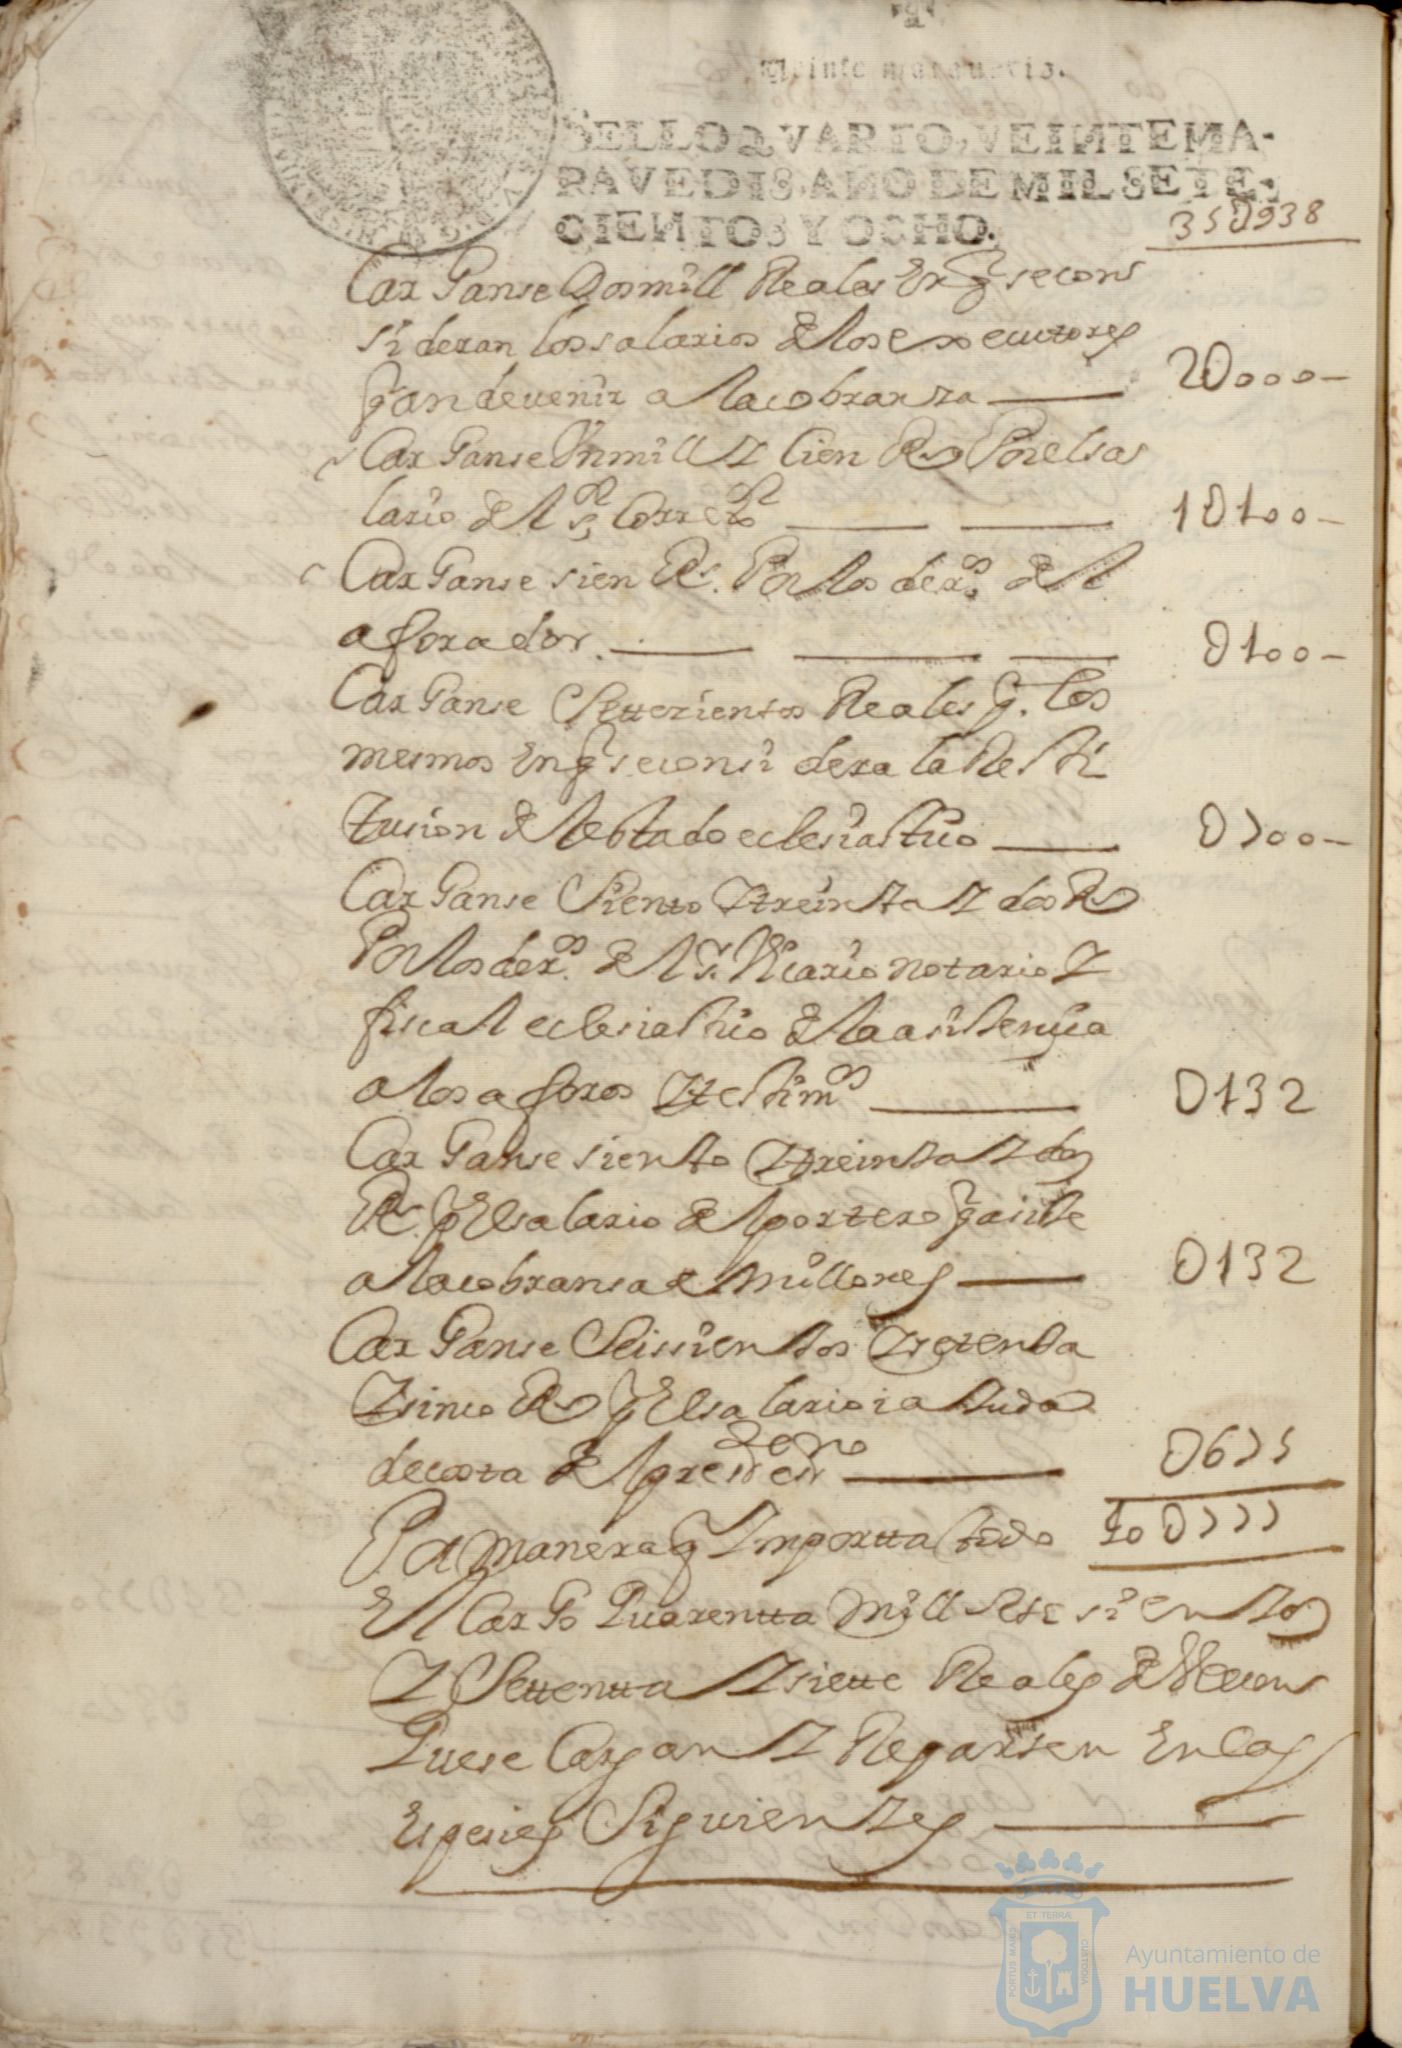 Veinte maravedis.
SELLO QVARTO, VEINTE MA-
RAVEDIS, AÑO DE MIL SETE-
CIENTOS Y OCHO.
35U938
Carganse Dos mill Reales En q se cons
sideran los salarios de los executores
q an de uenir a la cobranza 2U000
Carganse Vn mill Y Cien Rs Por el sa
lario del sr Correxor 1U100
Carganse sien Rs. Por los deros del
aforador. U100
Carganse Settezientos Reales q. los
mesmos En q se considera la Resti
tusion del estado eclesiastico U700
Carganse Siento Y treinta Y dos Rs
Por los deros del sr. Vicario notario Y
fiscal eclesiastico de la asistençia
a los aforos Y testimos U132
Carganse siento Y treinta Y dos
Rs. p El salario del portero q asiste
a la cobransa de millones U132
Carganse Seissientos Y setenta
Y sinco Rs p El salario i aiuda
de costa del presste esno U675
Por manera q Importta todo 40U777
El Cargo Quarentta mill sete sientos
Y Settentta Y siette Reales de Vellon
Que se Cargan Y Reparten En las
Espesies Siguientes
PORTUS MARIS
ET TERRÆ
CUSTODIA
Ayuntamiento de
HUELVA